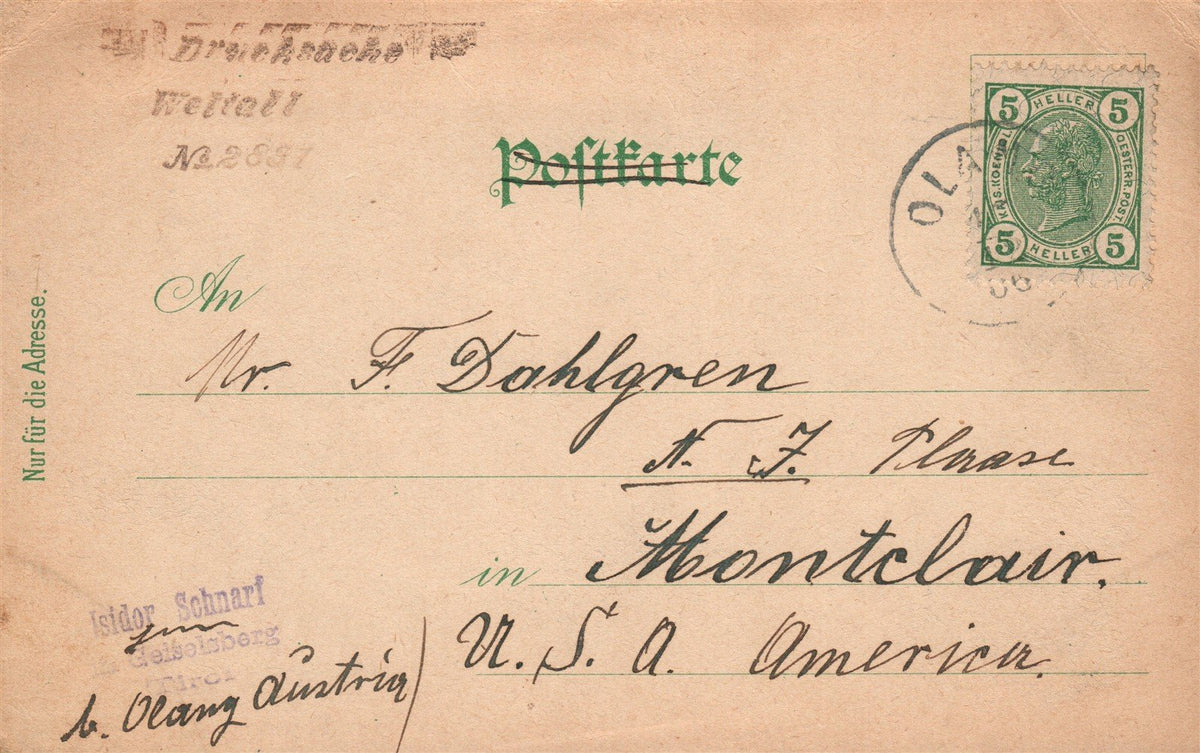 Drucksache
Weltall
No 2837
Postkarte
5 HELLER 5
KAIS. KOENIGL.
OESTERR. POST.
5 HELLER 5
OLA
06
An
Mr. F. Dahlgren
N. J.
in Montclair.
U. S. A. America.
Nur für die Adresse.
Isidor Schnarf
jun
in Geiselsberg
Tirol
b. Olang Austria